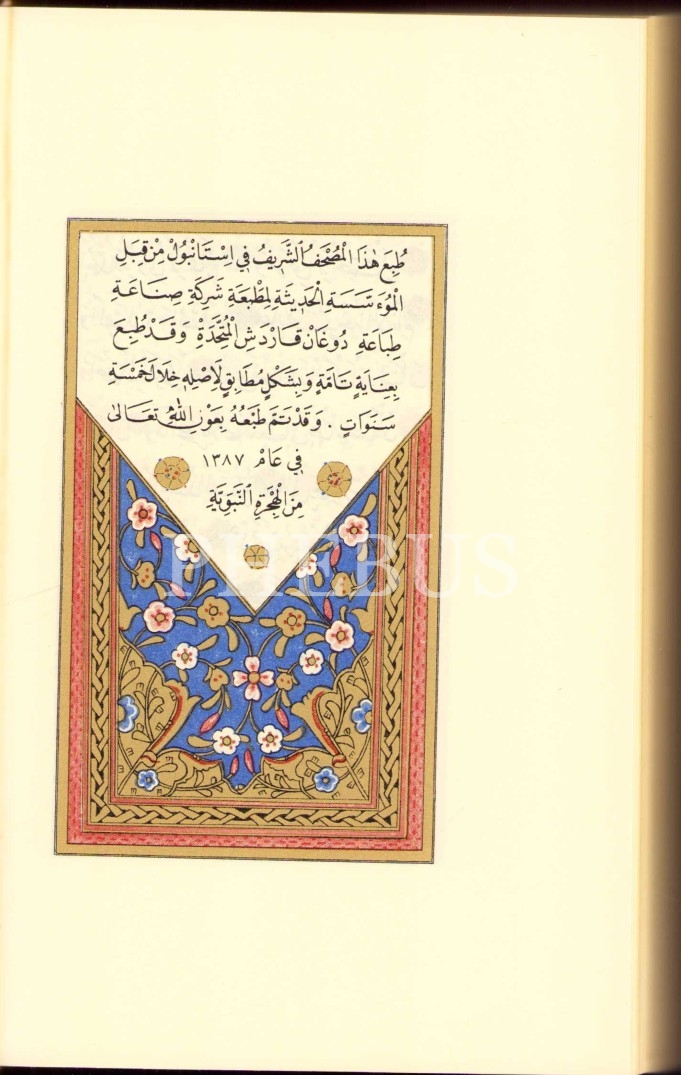 طُبِعَ هٰذَا الْمُصْحَفُ الشَّرِيفُ فِي اِسْتَانْبُولْ مِنْ قِبَلِ
الْمُوءَسَّسَةِ الْحَدِيثَةِ لِمَطْبَعَةِ شَرِكَةِ صِنَاعَةِ
طِبَاعَةِ دُوغَانْ قَارْدَشِ الْمُتَّحَدَةْ وَقَدْ طُبِعَ
بِعِنَايَةٍ تَامَّةٍ وَبِشَكْلٍ مُطَابِقٍ لَاِصْلِهِ خِلَالَ خَمْسَةِ
سَنَوَاتٍ . وَقَدْ تَمَّ طَبْعُهُ بِعَوْنِ اللّٰهِ تَعَالٰى
فِي عَامْ ١٣٨٧
مِنَ الْهِجْرَةِ النَّبَوِيَّةِ
PHEBUS